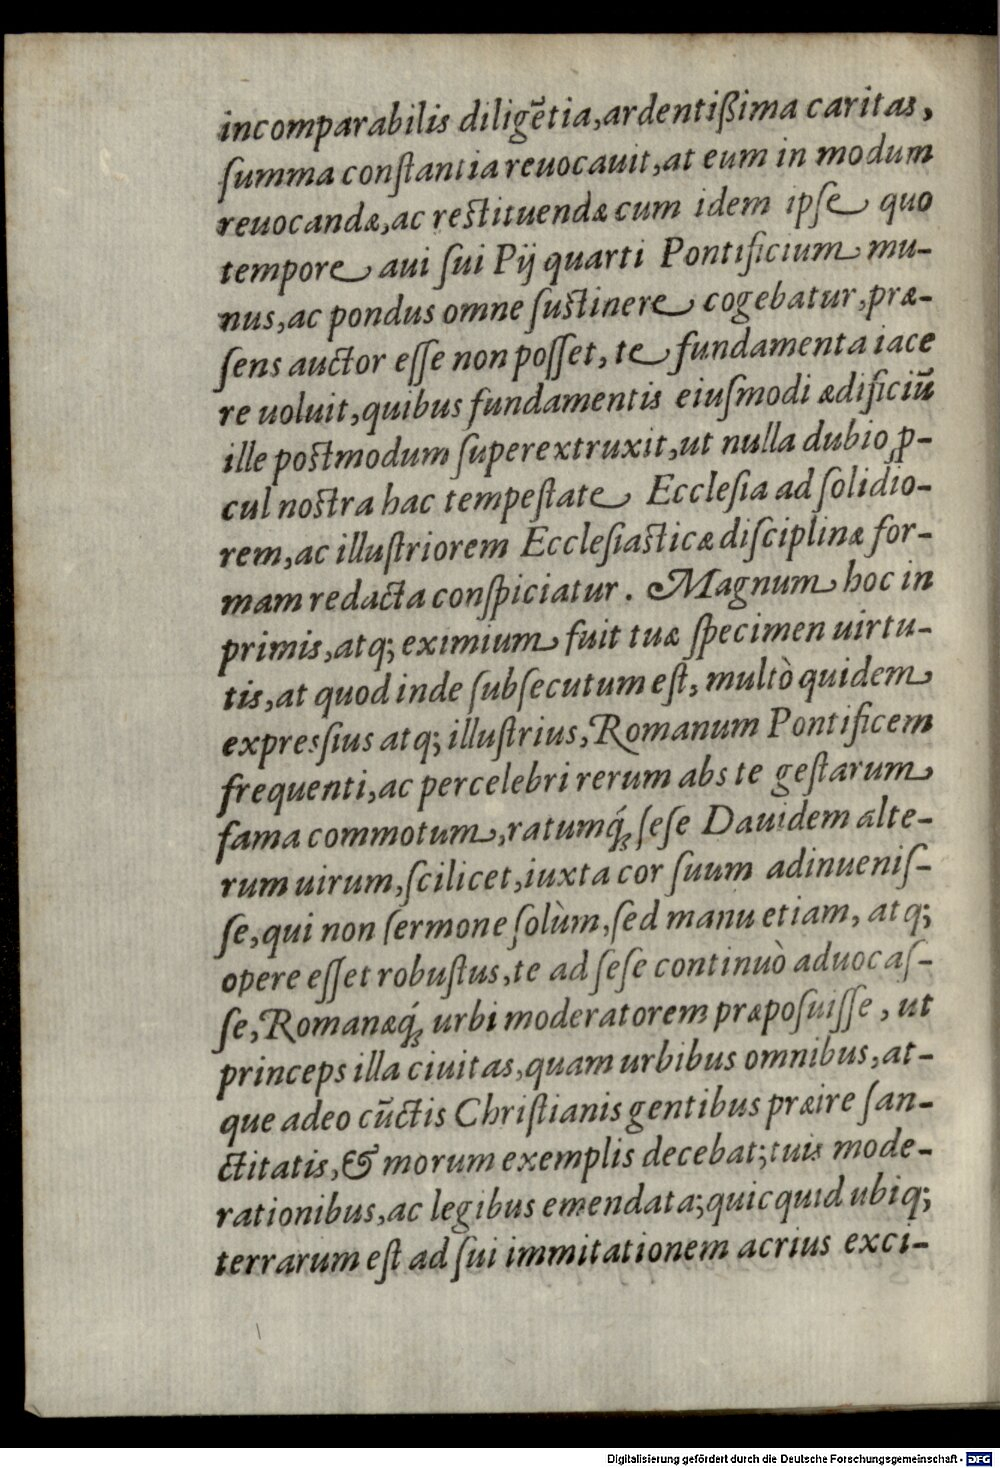 incomparabilis diligẽtia,ardentißima caritas,
ſumma conſtantia reuocauit,at eum in modum
reuocandæ,ac reſtituendæ cum idem ipſe quo
tempore aui ſui Pij quarti Pontificium mu-
nus,ac pondus omne ſuſtinere cogebatur,præ-
ſens auctor eſſe non poſſet, te fundamenta iace
re uoluit,quibus fundamentis eiuſmodi ædificiũ
ille poſtmodum ſuperextruxit,ut nulla dubio ꝓ-
cul noſtra hac tempeſtate Eccleſia ad ſolidio-
rem,ac illuſtriorem Eccleſiaſticæ diſciplinæ for-
mam redacta conſpiciatur. Magnum hoc in
primis,atq; eximium fuit tuæ ſpecimen uirtu-
tis,at quod inde ſubſecutum eſt, multò quidem
expresſius atq; illuſtrius,Romanum Pontificem
frequenti,ac percelebri rerum abs te geſtarum
fama commotum,ratumq́; ſeſe Dauidem alte-
rum uirum,ſcilicet,iuxta cor ſuum adinueniſ-
ſe,qui non ſermone ſolùm,ſed manu etiam, atq;
opere eſſet robuſtus,te ad ſeſe continuò aduocaſ-
ſe,Romanæq́; urbi moderatorem præpoſuiſſe, ut
princeps illa ciuitas,quam urbibus omnibus,at-
que adeo cũctis Chriſtianis gentibus præire ſan-
ctitatis,& morum exemplis decebat;tuis mode-
rationibus,ac legibus emendata;quicquid ubiq;
terrarum eſt ad ſui immitationem acrius exci-
Digitalisierung gefördert durch die Deutsche Forschungsgemeinschaft - DFG